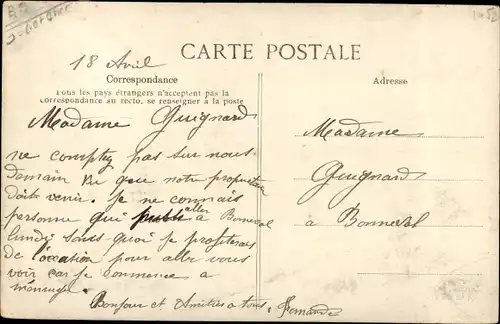 18 Avril
CARTE POSTALE
Correspondance
Tous les pays étrangers n'acceptent pas la
correspondance au recto, se renseigner à la poste
Adresse
Madame Guignard
ne comptez pas sur nous
demain vu que notre propriétaire
doit venir. Je ne connais
personne qui aller à Bonneval
lundi sans quoi je profiterais
de l'occasion pour aller vous
voir car je commence a
m'ennuyer.
Bonjour et Amitiés a tous. Fernande
Madame
Guignard
à Bonneval